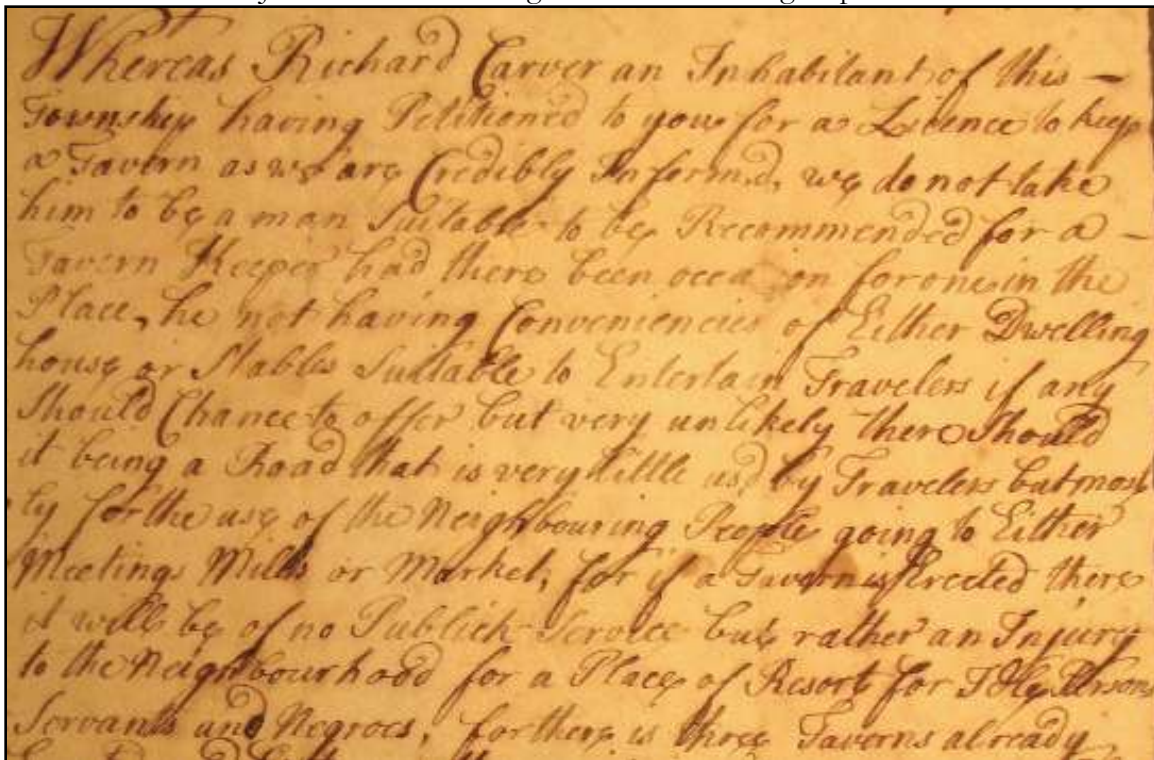 Whereas Richard Carver an Inhabitant of this —
Township having Petitioned to you for a Licence to keep
a Tavern as we are Credibly Inform.d, we do not take
him to be a man Suitable to be Recommended for a —
Tavern Keeper had there been occasion for one in the
Place, he not having Conveniencies of Either Dwelling
house or Stables Suitable to Entertain Travelers if any
Should Chance to offer but very unlikely there Should
it being a Road that is very little us.d by Travelers but most
ly for the use of the Neighbouring People going to Either
Meetings Mills or Market, for if a Tavern is Erected there
it will be of no Publick Service but rather an Injury
to the Neighbourhood for a Place of Resort for Idle Persons
Servants and Negroes, for there is three Taverns already